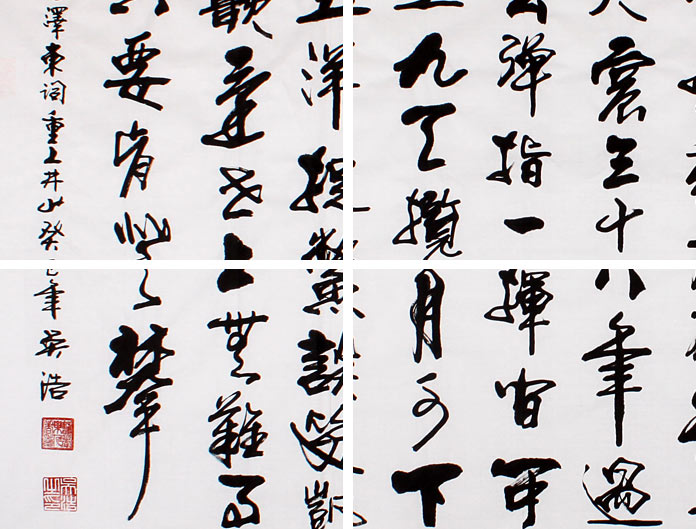 人寰三十八年過
去彈指一揮間可
上九天攬月可下
五洋捉鱉談笑凱
歌還世上無難事
只要肯登攀
澤東詞重上井山癸巳年吳浩